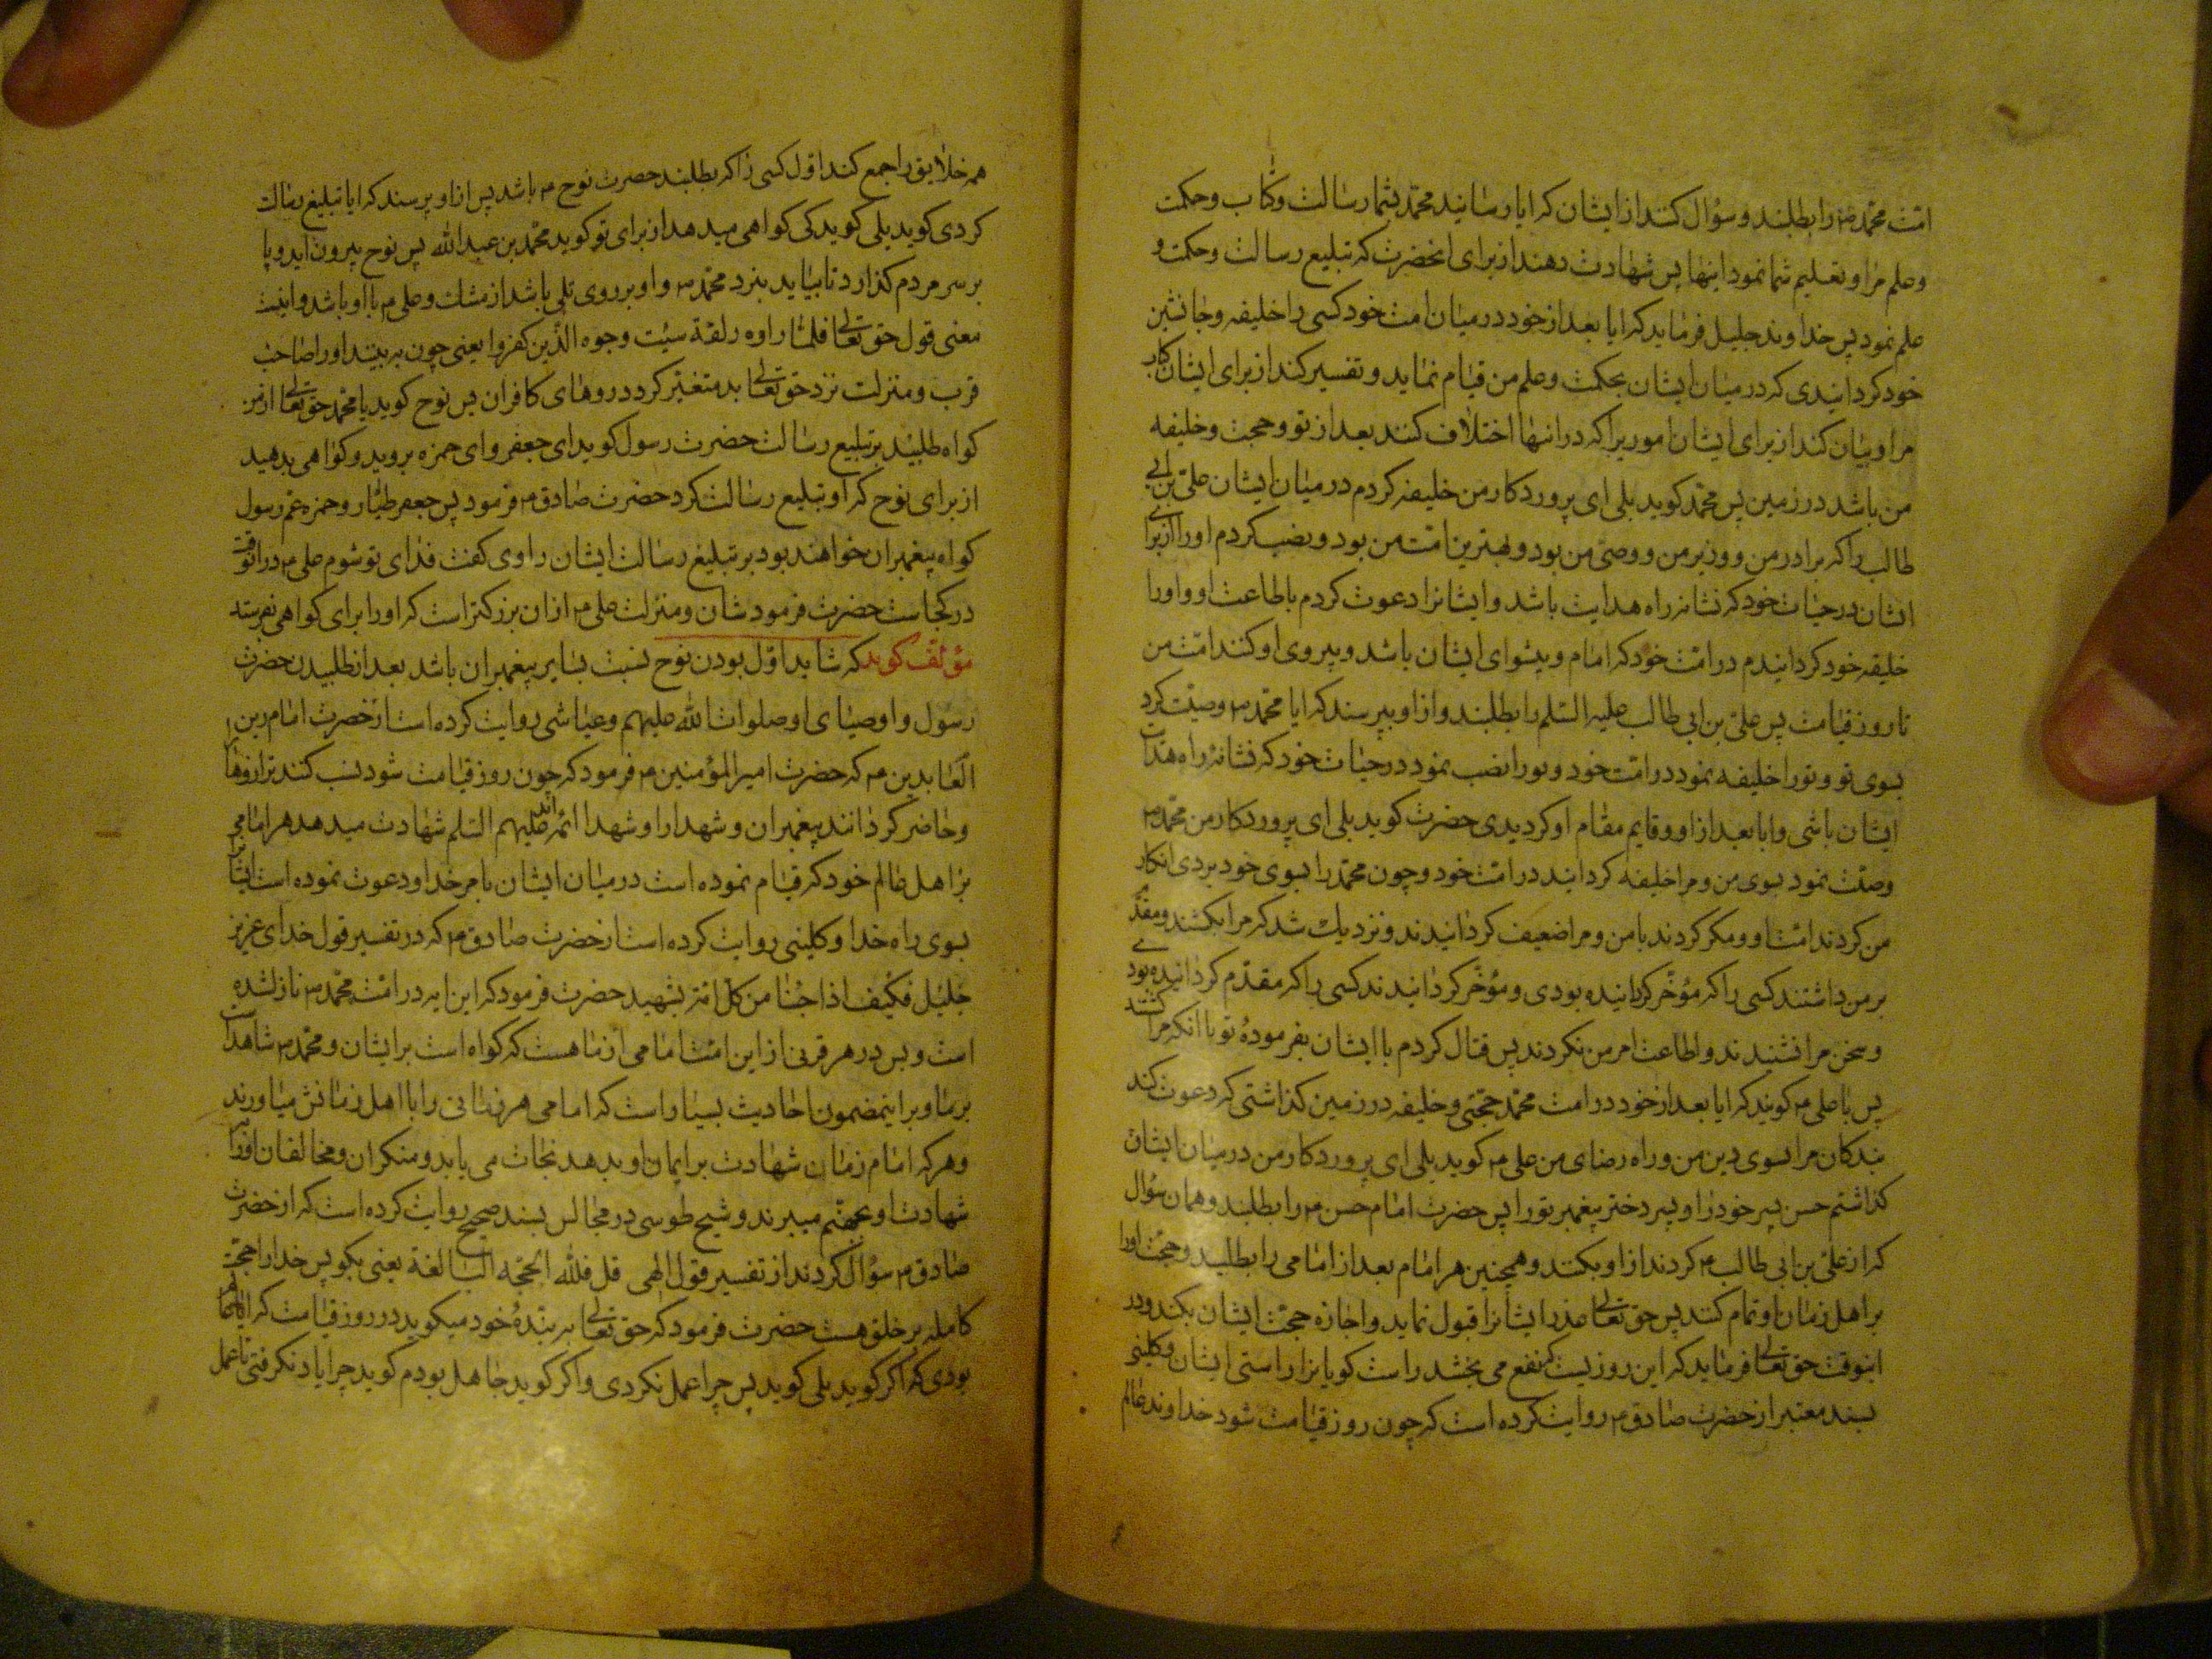 امّت محمّد ص را بطلبند و سؤال کنند از ایشان که ایا رسانید محمّد بشما رسالت و کتاب و حکمت
و علم مرا و تعلیم شما نمود اینها پس شهادت دهند از برای انحضرت که تبلیغ رسالت و حکمت و
علم نمود پس خداوند جلیل فرماید که ایا بعد از خود در میان امت خود کسی را خلیفه و جانشین
خود کردانیدی که در میان ایشان بحکمت و علم من قیام نماید و تفسیر کند از برای ایشان کتاب
مرا و بیان کند از برای ایشان اموریرا که در انها اختلاف کنند بعد از تو و حجت و خلیفه
من باشد در زمین پس محمّد کوید بلی ای پروردکار من خلیفه کردم در میان ایشان علیّ بن ابی
طالب را که برادر من و وزیر من و وصیّ من بود و بهترین امّت من بود و نصب کردم او را از برای
ایشان در حیات خود که نشانه راه هدایت باشد و ایشانرا دعوت کردم باطاعت او و اورا
خلیفه خود کردانیدم در امّت خود که امام و پیشوای ایشان باشد و پیروی او کنند امّت من
تا روز قیامت پس علیّ بن ابی طالب علیه السّلم را بطلبند و از او بپرسند که ایا محمّد ص وصیّت کرد
بسوی تو و تورا خلیفه نمود در امّت خود و تورا نصب نمود در حیات خود که نشانهٔ راه هدایت
ایشان باشی و ایا بعد از او و قایم مقام او کردیدی حضرت کوید بلی ای پروردکار من محمّد ص
وصیّت نمود بسوی من و مرا خلیفه کردانید در امّت خود و چون محمّد را بسوی خود بردی انکار
من کردند امّت او و مکر کردند با من و مرا ضعیف کردانیدند و نزدیک شد که مرا بکشند و مقدّم
بر من داشتند کسی را که مؤخّر کردانیده بودی و مؤخّر کردانیدند کسی را که مقدّم کردانیده بودی
و سخن مرا نشنیدند و اطاعت امر من نکردند پس قتال کردم با ایشان بفرمودهٔ تو تا انکه مرا کشتند
پس با علی ع کویند که ایا بعد از خود در امت محمّد حجّتی و خلیفه در زمین کذاشتی که دعوت کند
بندکان مرا بسوی دین من و راه رضای من علی ع کوید بلی ای پروردکار من در میان ایشان
کذاشتم حسن پسر خود را و پسر دختر پیغمبر تورا پس حضرت امام حسن ع را بطلبند و همان سؤال
که از علیّ بن ابی طالب ع کردند از او بکنند و همچنین هر امام بعد از امامی را بطلبید و حجّت اورا
بر اهل زمان او تمام کنند پس حق تعالی عذر ایشانرا قبول نماید و اجازه حجّت ایشان بکند و در
انوقت حق تعالی فرماید که این روزیست که نفع می بخشد راست کویانرا راستی ایشان و کلینی
بسند معتبر از حضرت صادق ع روایت کرده است که چون روز قیامت شود خداوند عالم
همه خلایق را جمع کند اوّل کسی را که بطلبند حضرت نوح ع باشد پس از او پرسند که ایا تبلیغ رسالت
کردی کوید بلی کوید کی کواهی میدهد از برای تو کوید محمّد بن عبدالله پس نوح بیرون اید و پا
بر سر مردم کذارد تا بیاید بنزد محمّد ص و او بر روی تلی باشد از مشک و علی ع با او باشد و اینست
معنی قول حق تعالی فلمّا راوه زلفة سیئت وجوه الّذین کفروا یعنی چون به بینند اورا صاحب
قرب و منزلت نزد حق تعالی بد متغیّر کردد روهای کافران پس نوح کوید یا محمّد حق تعالی از من
کواه طلبید بر تبلیغ رسالت حضرت رسول کوید ای جعفر و ای حمزه بروید و کواهی بدهید
از برای نوح که او تبلیغ رسالت کرد حضرت صادق ع فرمود پس جعفر طیّار و حمزه عمّ رسول
کواه پیغمبران خواهند بود بر تبلیغ رسالت ایشان راوی کفت فدای تو شوم علی ع در انوقت
در کجاست حضرت فرمود شان و منزلت علی ع از ان بزرکتر است که اورا برای کواهی بفرستد
مؤلّف کوید که شاید اوّل بودن نوح نسبت بسایر پیغمبران باشد بعد از طلبیدن حضرت
رسول و اوصیای او صلوات الله علیهم و عیاشی روایت کرده است از حضرت امام زین
العابدین ع که حضرت امیر المؤمنین ع فرمود که چون روز قیامت شود نصب کنند ترازوها
و حاضر کردانند پیغمبران و شهدا را و شهدا ائمّه اند علیهم السّلم شهادت میدهد هر امامی
بر اهل عالم خود که قیام نموده است در میان ایشان بامر خدا و دعوت نموده است ایشانرا
بسوی راه خدا و کلینی روایت کرده است از حضرت صادق ع که در تفسیر قول خدای عزیز
جلیل فکیف اذا جئنا من کل امّة بشهید حضرت فرمود که این ایه در امّت محمّد ص نازلشده
است و بس در هر قرنی از این امّت امامی از ما هست که کواه است بر ایشان و محمّد ص شاهدست
بر ما و بر اینمضمون احادیث بسیار است که امامی هر زمانی را با اهل زمانش میاورند
و هر که امام زمان شهادت بر ایمان او بدهد نجات می یابد و منکران و مخالفان او را
شهادت او بجهنّم میبرند و شیخ طوسی در مجالس بسند صحیح روایت کرده است که از حضرت
صادق ع سؤال کردند از تفسیر قول الهی قل فللّه الحجّة البالغة یعنی بکو پس خدا را حجّت
کامله بر خلق هست حضرت فرمود که حق تعالی به بندهٔ خود میکوید در روز قیامت که ایا عالم
بودی که اکر کوید بلی کوید پس چرا عمل نکردی و اکر کوید جاهل بودم کوید چرا یاد نکرفتی تا عمل